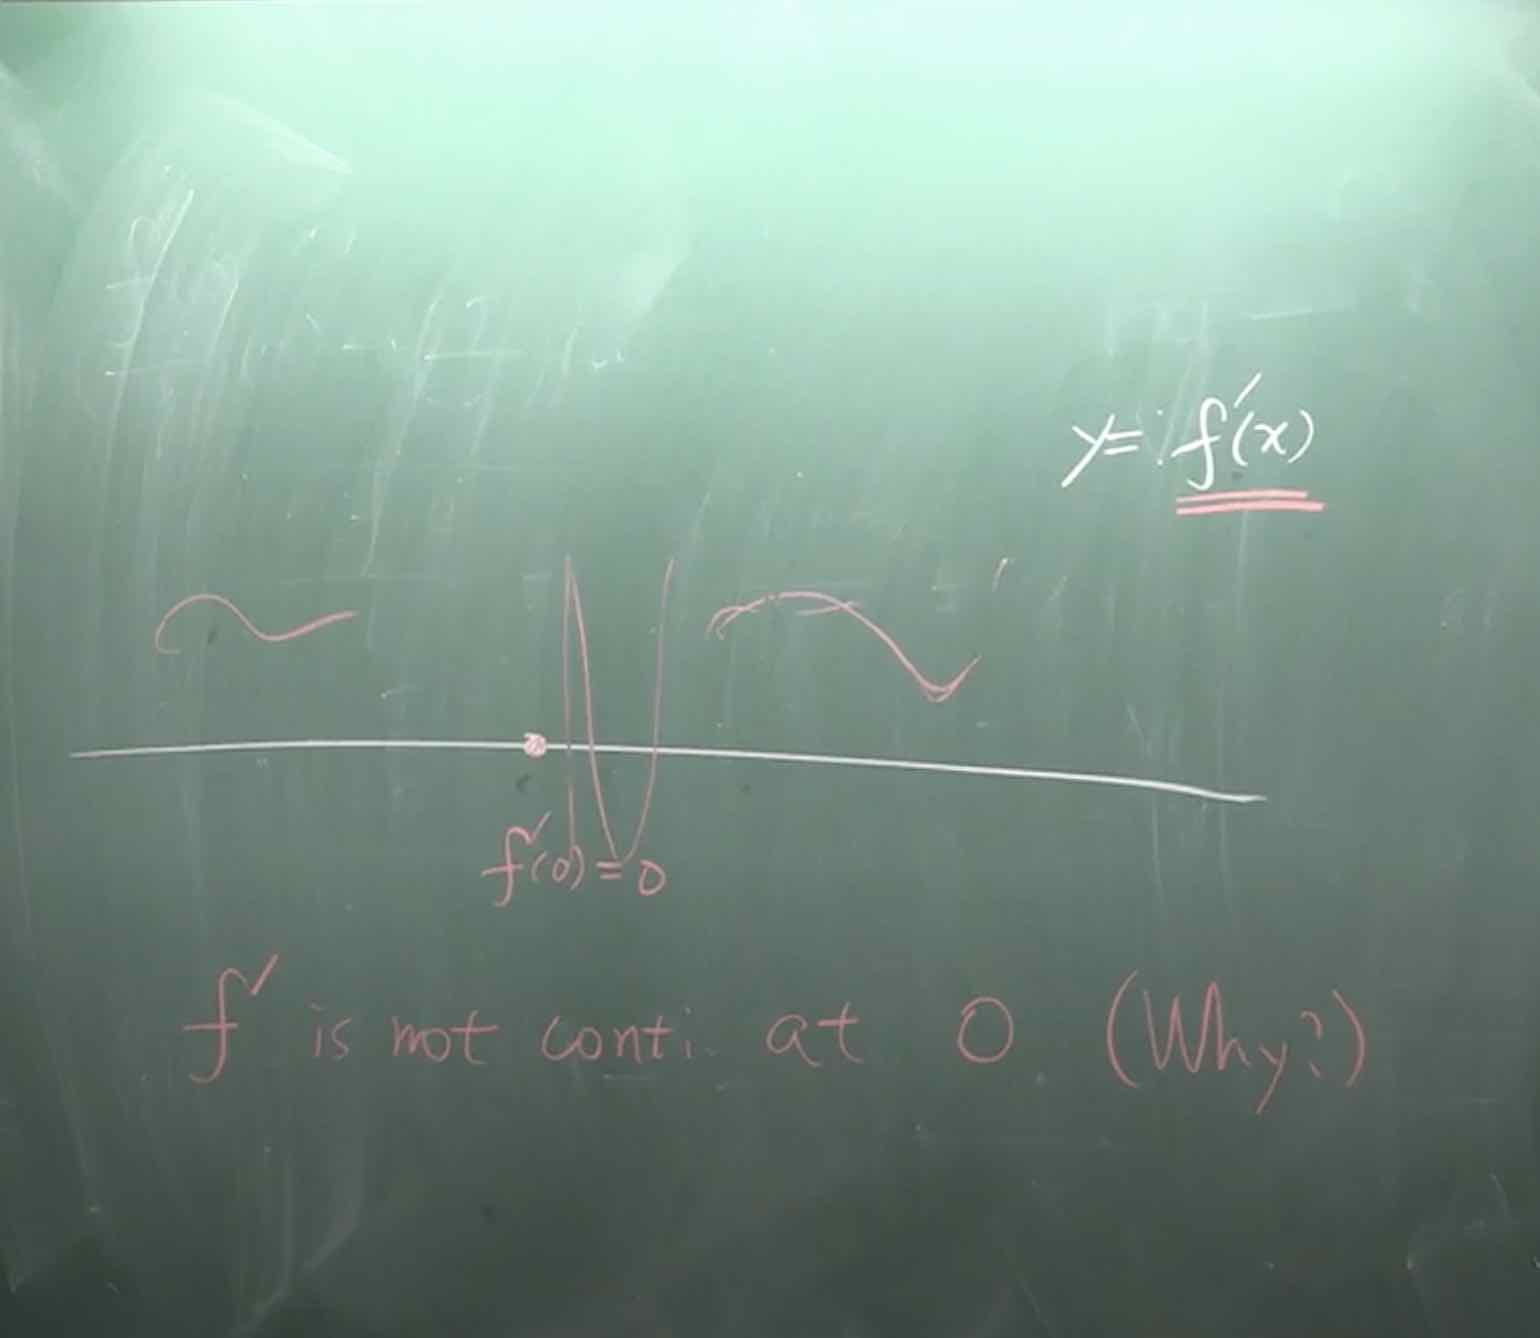 y = f'(x)
f'(0) = 0
f' is not conti. at 0 (Why?)